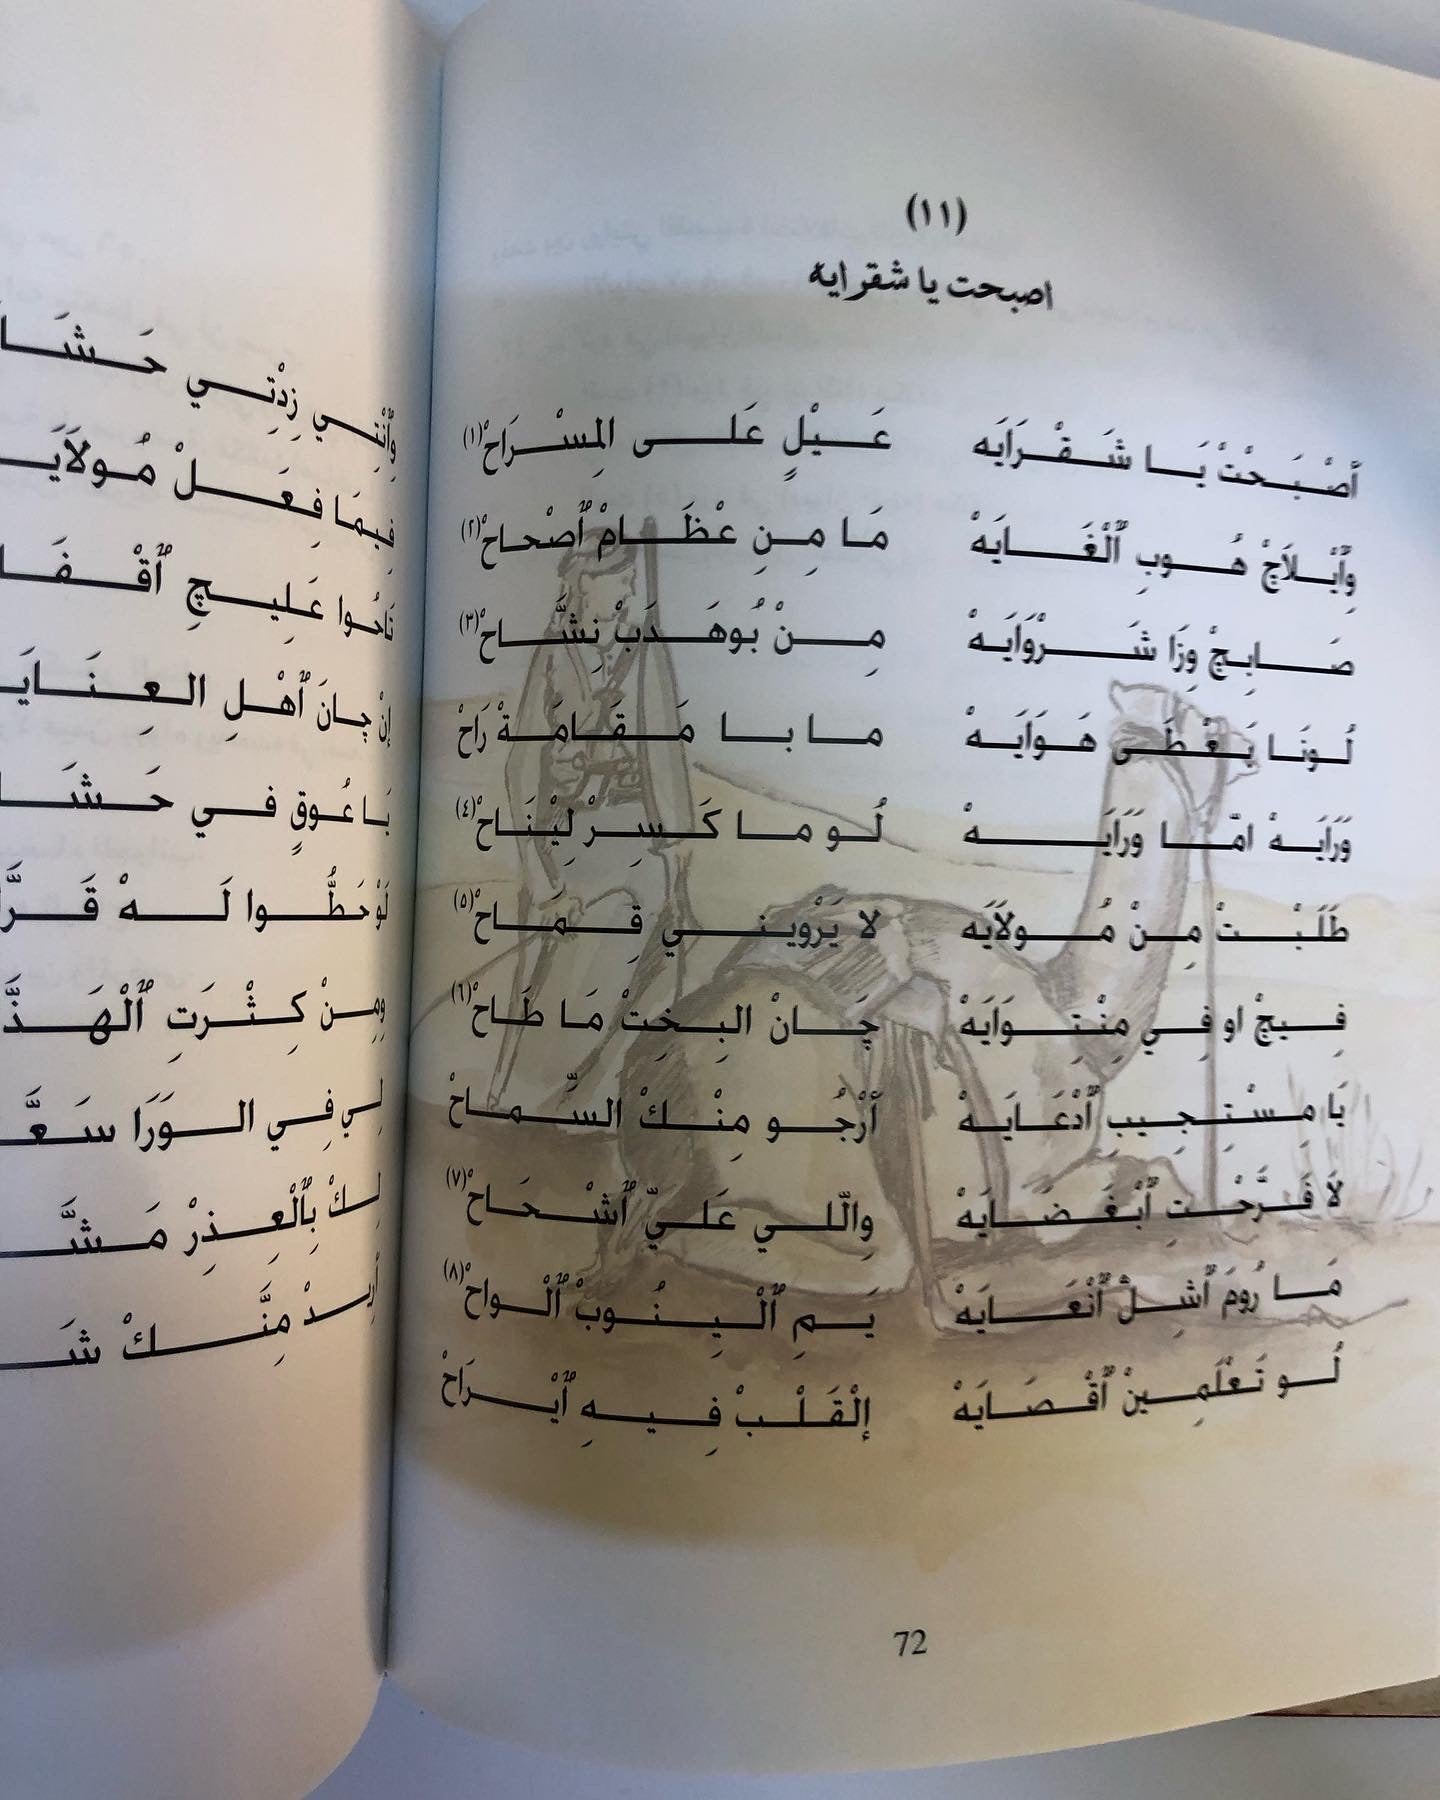 (١١)
اصبحت يا شقرايه
أَصْبَحْتْ يَا شَقْرَايَه عَيْلٍ عَلَى المِسْرَاحْ(١)
وِأَبْلاَجْ هُوبِ ٱلْغَايَهْ مَا مِنِ عْظَامْ ٱصْحاحْ(٢)
صَابِجْ وِزَا شَرْوَايَهْ مِنْ بُوهَدَبْ نِشَّاحْ(٣)
لُونَا يَعْطَى هَوَايَهْ مابا مَقَامَةْ رَاحْ
وَرَايَهْ امّا وَرَايَهْ لُو ما كَسِرْ لِيْنَاحْ(٤)
طَلَبْتْ مِنْ مُولاَيَه لا يَرْويني قِمَاحْ(٥)
فِيجْ او فِي مِنْتِوَايَهْ چَانْ البِخِتْ مَا طَاحْ(٦)
يَا مِسْتِجِيبِ ٱدْعَايَهْ أَرْجُو مِنْكْ السَّماحْ
لاَ فَرَّحْتِ ٱبْغَضَايَهْ وِالّلي عَلَيّ ٱشْحَاحْ(٧)
مَا رُومَ ٱشِلْ ٱنْعَايَهْ يَمِ ٱلْيِنُوبْ ٱلْواحْ(٨)
لُو تَعْلَمِينْ ٱقْصَايَهْ إلْقَلْبْ فِيهِ ٱيْرَاحْ
72
وَٱنْتِي زِدْتِي
فِيمَا فِعَلْ
نَاحُوا عَلِيچِ
إنْ چانَ ٱهْلِ
يَا عُوقٍ في
لَوْ حَطُّوا لَهْ
وِمِنْ كِثْرَتِ
لِي فِي الوَرَا
لِكْ بِٱلْعِذِرْ
أَرِيدْ مِنَّكْ